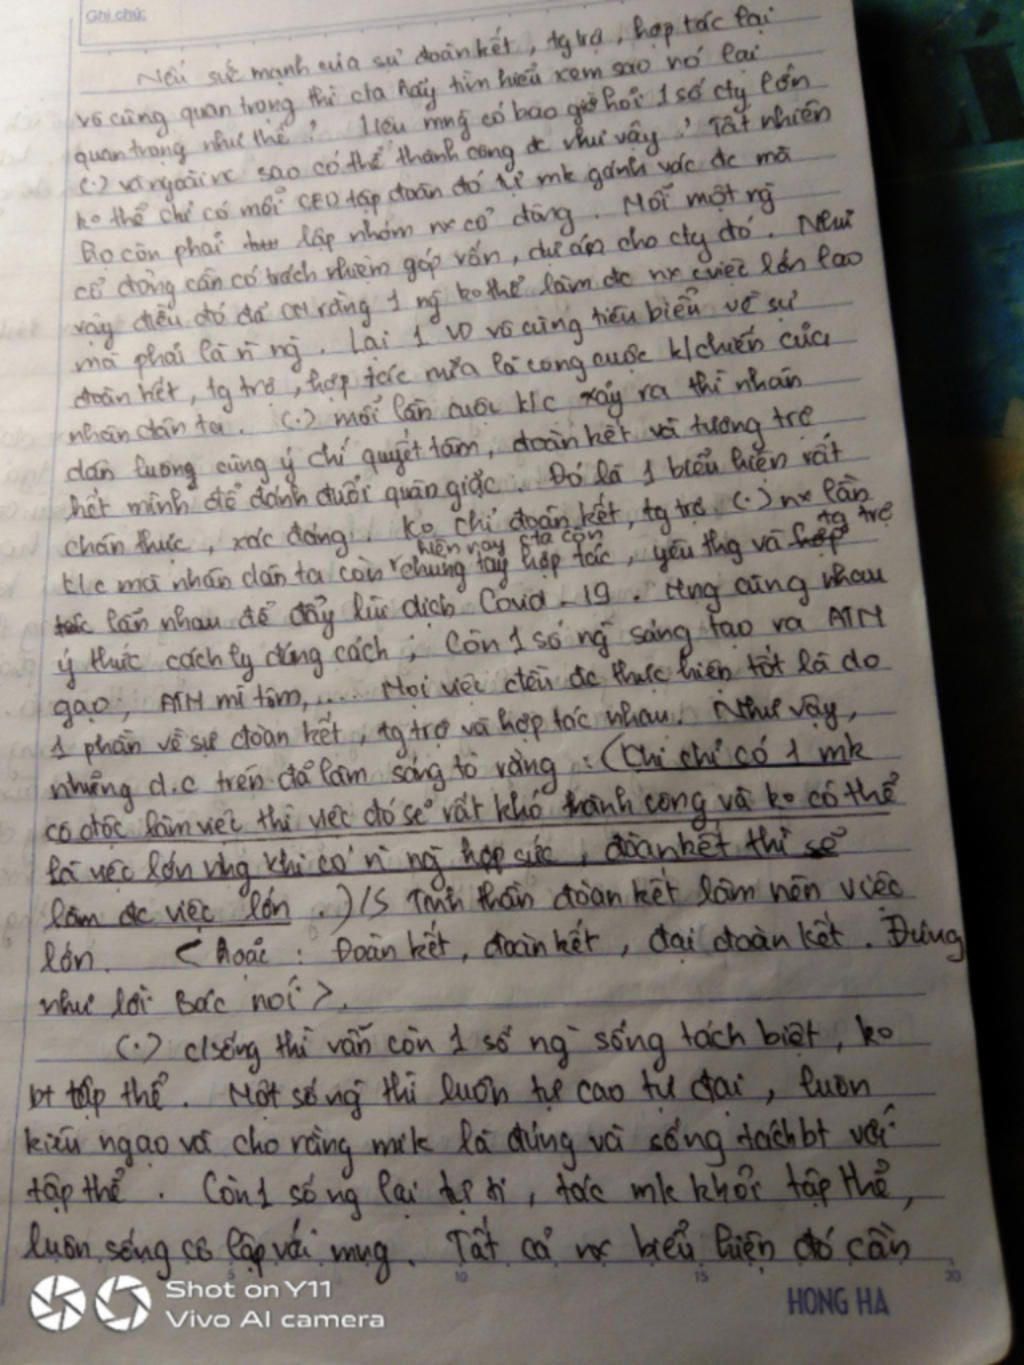 Ghi chú:
Nếu sức mạnh của sự đoàn kết, tg trợ, hợp tác lại
vô cùng quan trọng thì cta hãy tìm hiểu xem sao nó lại
quan trọng như thế? Liệu mng có bao giờ hỏi 1 số cty lớn
(.) và ngoài nc sao có thể thành công đc như vậy? Tất nhiên
ko thể chỉ có mỗi CEO tập đoàn đó tự mk gánh vác đc mà
họ còn phải lập nhóm nx cổ đông. Mỗi một ng
cổ đông cần có trách nhiệm góp vốn, dự án cho cty đó. Như
vậy điều đó đã CM rằng 1 ng ko thể làm đc nx việc lớn lao
mà phải là n ng. Lại 1 VD vô cùng tiêu biểu về sự
đoàn kết, tg trợ, hợp tác nữa là công cuộc k/chiến của
nhân dân ta. (.) mỗi lần cuộc k/c xảy ra thì nhân
dân luong cùng ý chí quyết tâm, đoàn kết và tương trợ
hết mình để đánh đuổi quân giặc. Đó là 1 biểu hiện rất
chân thực, xác đáng. Ko chỉ đoàn kết, tg trợ (.) nx lần
k/c mà nhân dân ta còn hiện nay cta còn chung tay hợp tác, yêu thg và hợp tg trợ
tác lẫn nhau để đẩy lùi dịch Covid-19. Mng cùng nhau
ý thức cách ly đúng cách; Còn 1 số ng sáng tạo ra ATM
gạo, ATM mì tôm,.... Mọi việc đều đc thực hiện tốt là do
1 phần về sự đoàn kết, tg trợ và hợp tác nhau. Như vậy,
những d.c trên đã làm sáng tỏ rằng: (Khi chỉ có 1 mk
cô độc làm việc thì việc đó sẽ rất khó thành công và ko có thể
là việc lớn nhg khi có n ng hợp sức, đoàn kết thì sẽ
làm đc việc lớn.)/S Tinh thần đoàn kết làm nên việc
lớn. <hoặc: Đoàn kết, đoàn kết, đại đoàn kết. Đúng
như lời Bác nói>.
(.) c/sống thì vẫn còn 1 số ng sống tách biệt, ko
bt tập thể. Một số ng thì luôn tự cao tự đại, luôn
kiêu ngạo và cho rằng mk là đúng và sống tách bt với
tập thể. Còn 1 số ng lại tự ti, tác mk khỏi tập thể,
luôn sống cô lập với mng. Tất cả nx biểu hiện đó cần
5 10 15 20
HONG HA
Shot on Y11
Vivo AI camera